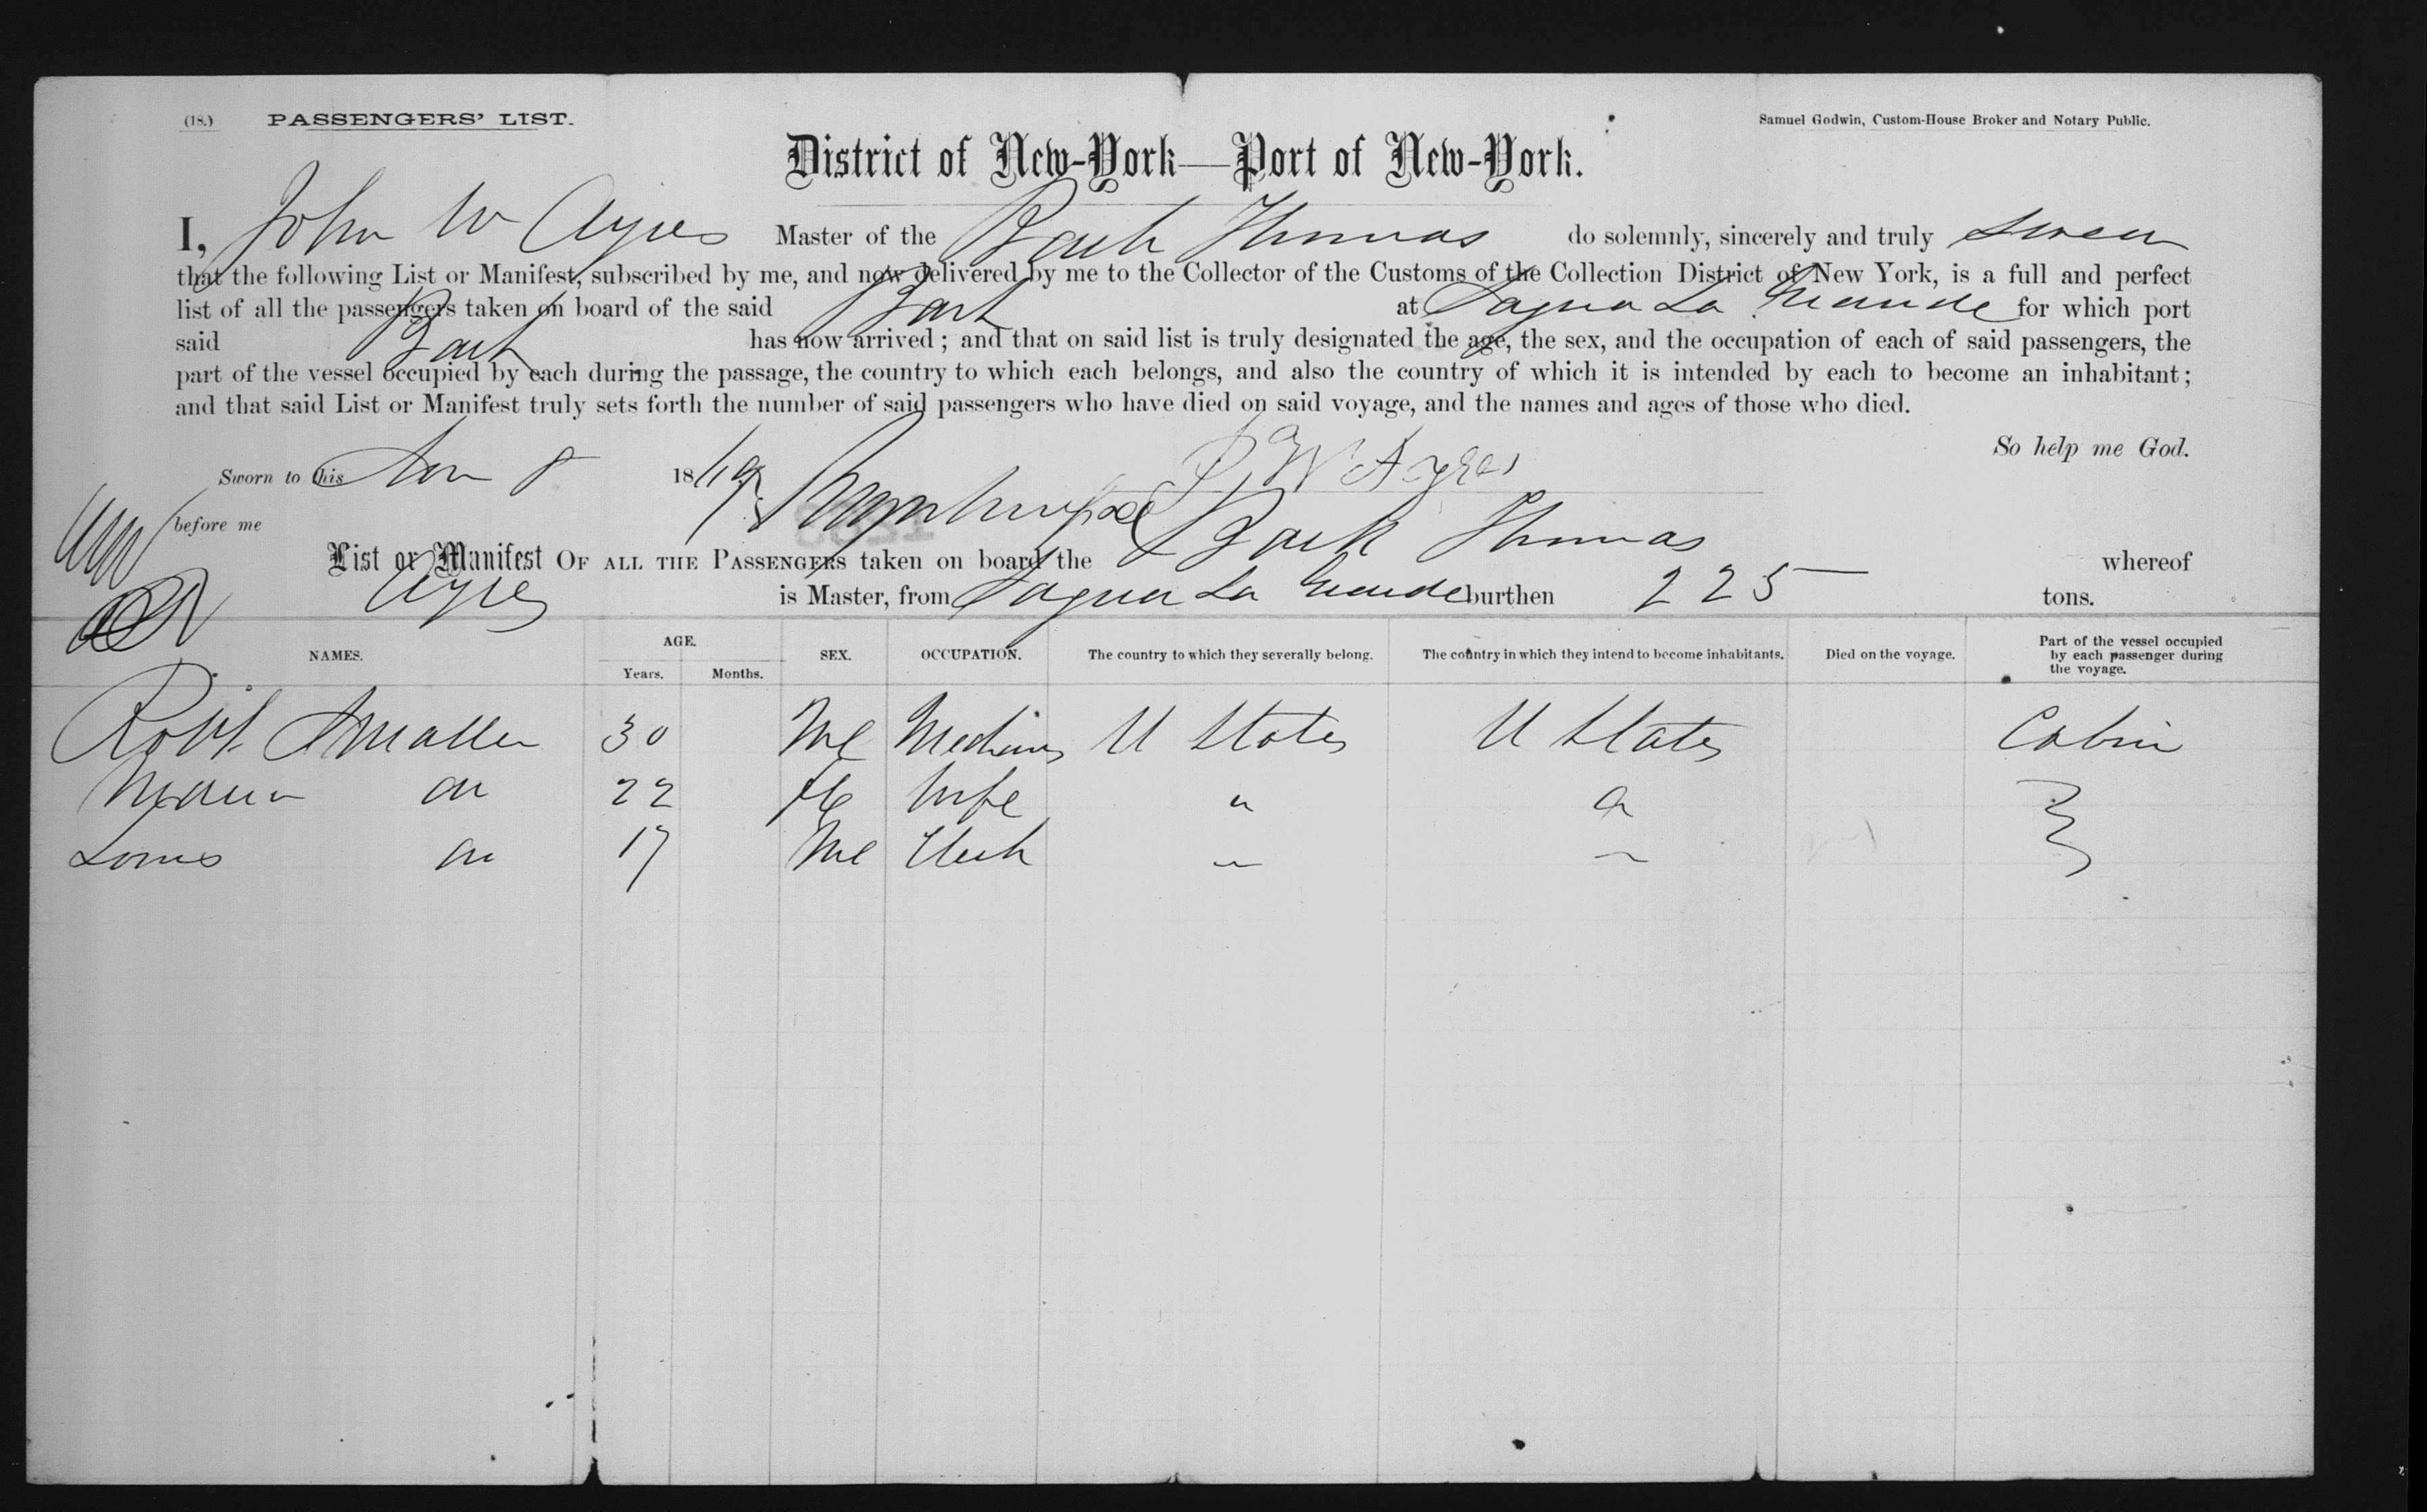 (18.) PASSENGERS' LIST.
Samuel Godwin, Custom-House Broker and Notary Public.
District of New-York—Port of New-York.
I, John W Ayres Master of the Bark Thomas do solemnly, sincerely and truly swear
that the following List or Manifest, subscribed by me, and now delivered by me to the Collector of the Customs of the Collection District of New York, is a full and perfect
list of all the passengers taken on board of the said Bark at Sagua La Grande for which port
said Bark has now arrived; and that on said list is truly designated the age, the sex, and the occupation of each of said passengers, the
part of the vessel occupied by each during the passage, the country to which each belongs, and also the country of which it is intended by each to become an inhabitant;
and that said List or Manifest truly sets forth the number of said passengers who have died on said voyage, and the names and ages of those who died.
So help me God.
Sworn to this Nov 8 1869 J W Ayres
before me
List or Manifest OF ALL THE PASSENGERS taken on board the Bark Thomas whereof
Ayres is Master, from Sagua La Grande burthen 225 tons.
NAMES. AGE. Years. Months. SEX. OCCUPATION. The country to which they severally belong. The country in which they intend to become inhabitants. Died on the voyage. Part of the vessel occupied by each passenger during the voyage.
Robt. Smaller 30 Me U States U States Cabin
do 22 Fe Wife " "
Louis do 17 Me Clerk " "